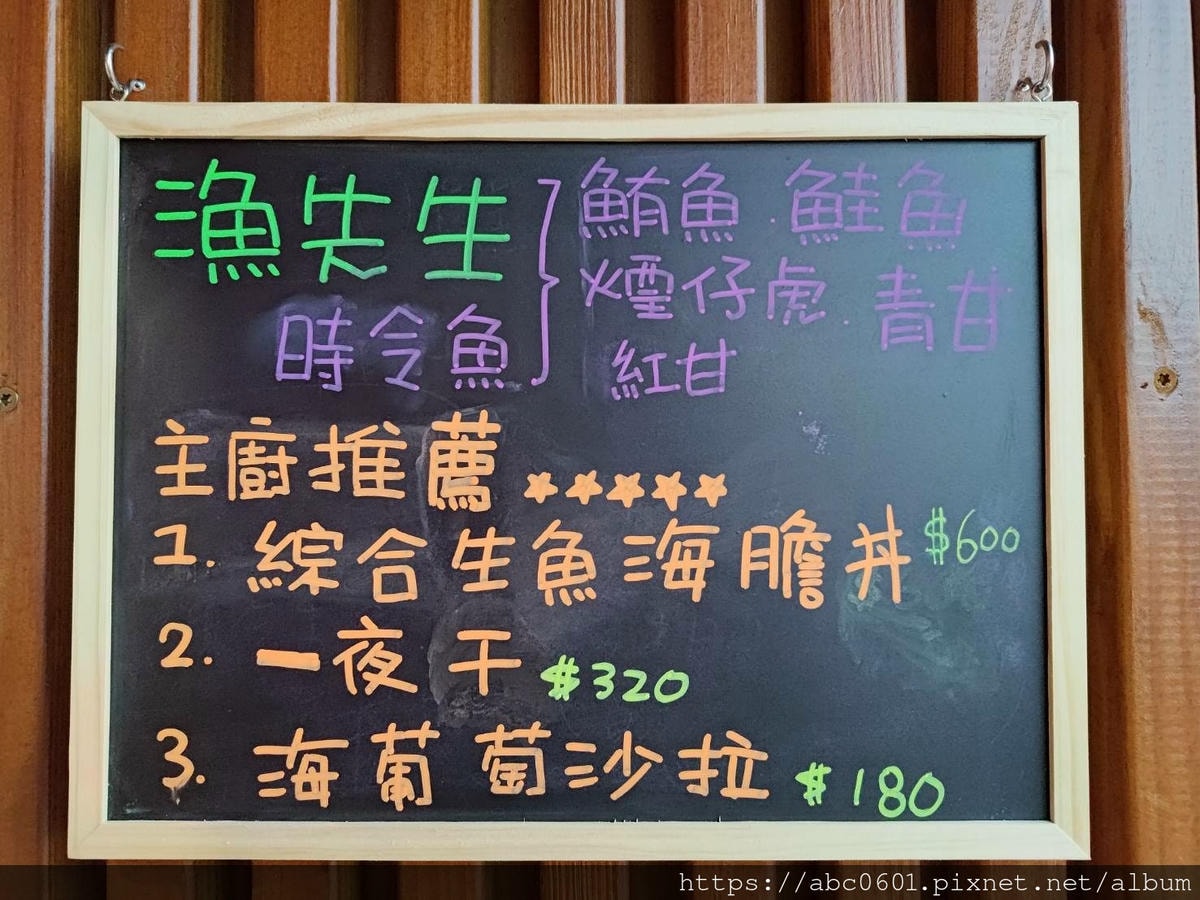 漁先生
時令魚
鮪魚.鮭魚
煙仔虎.青甘
紅甘
主廚推薦☆☆☆☆☆
1. 綜合生魚海膽丼 $600
2. 一夜干 $320
3. 海葡萄沙拉 $180
https://abc0601.pixnet.net/album